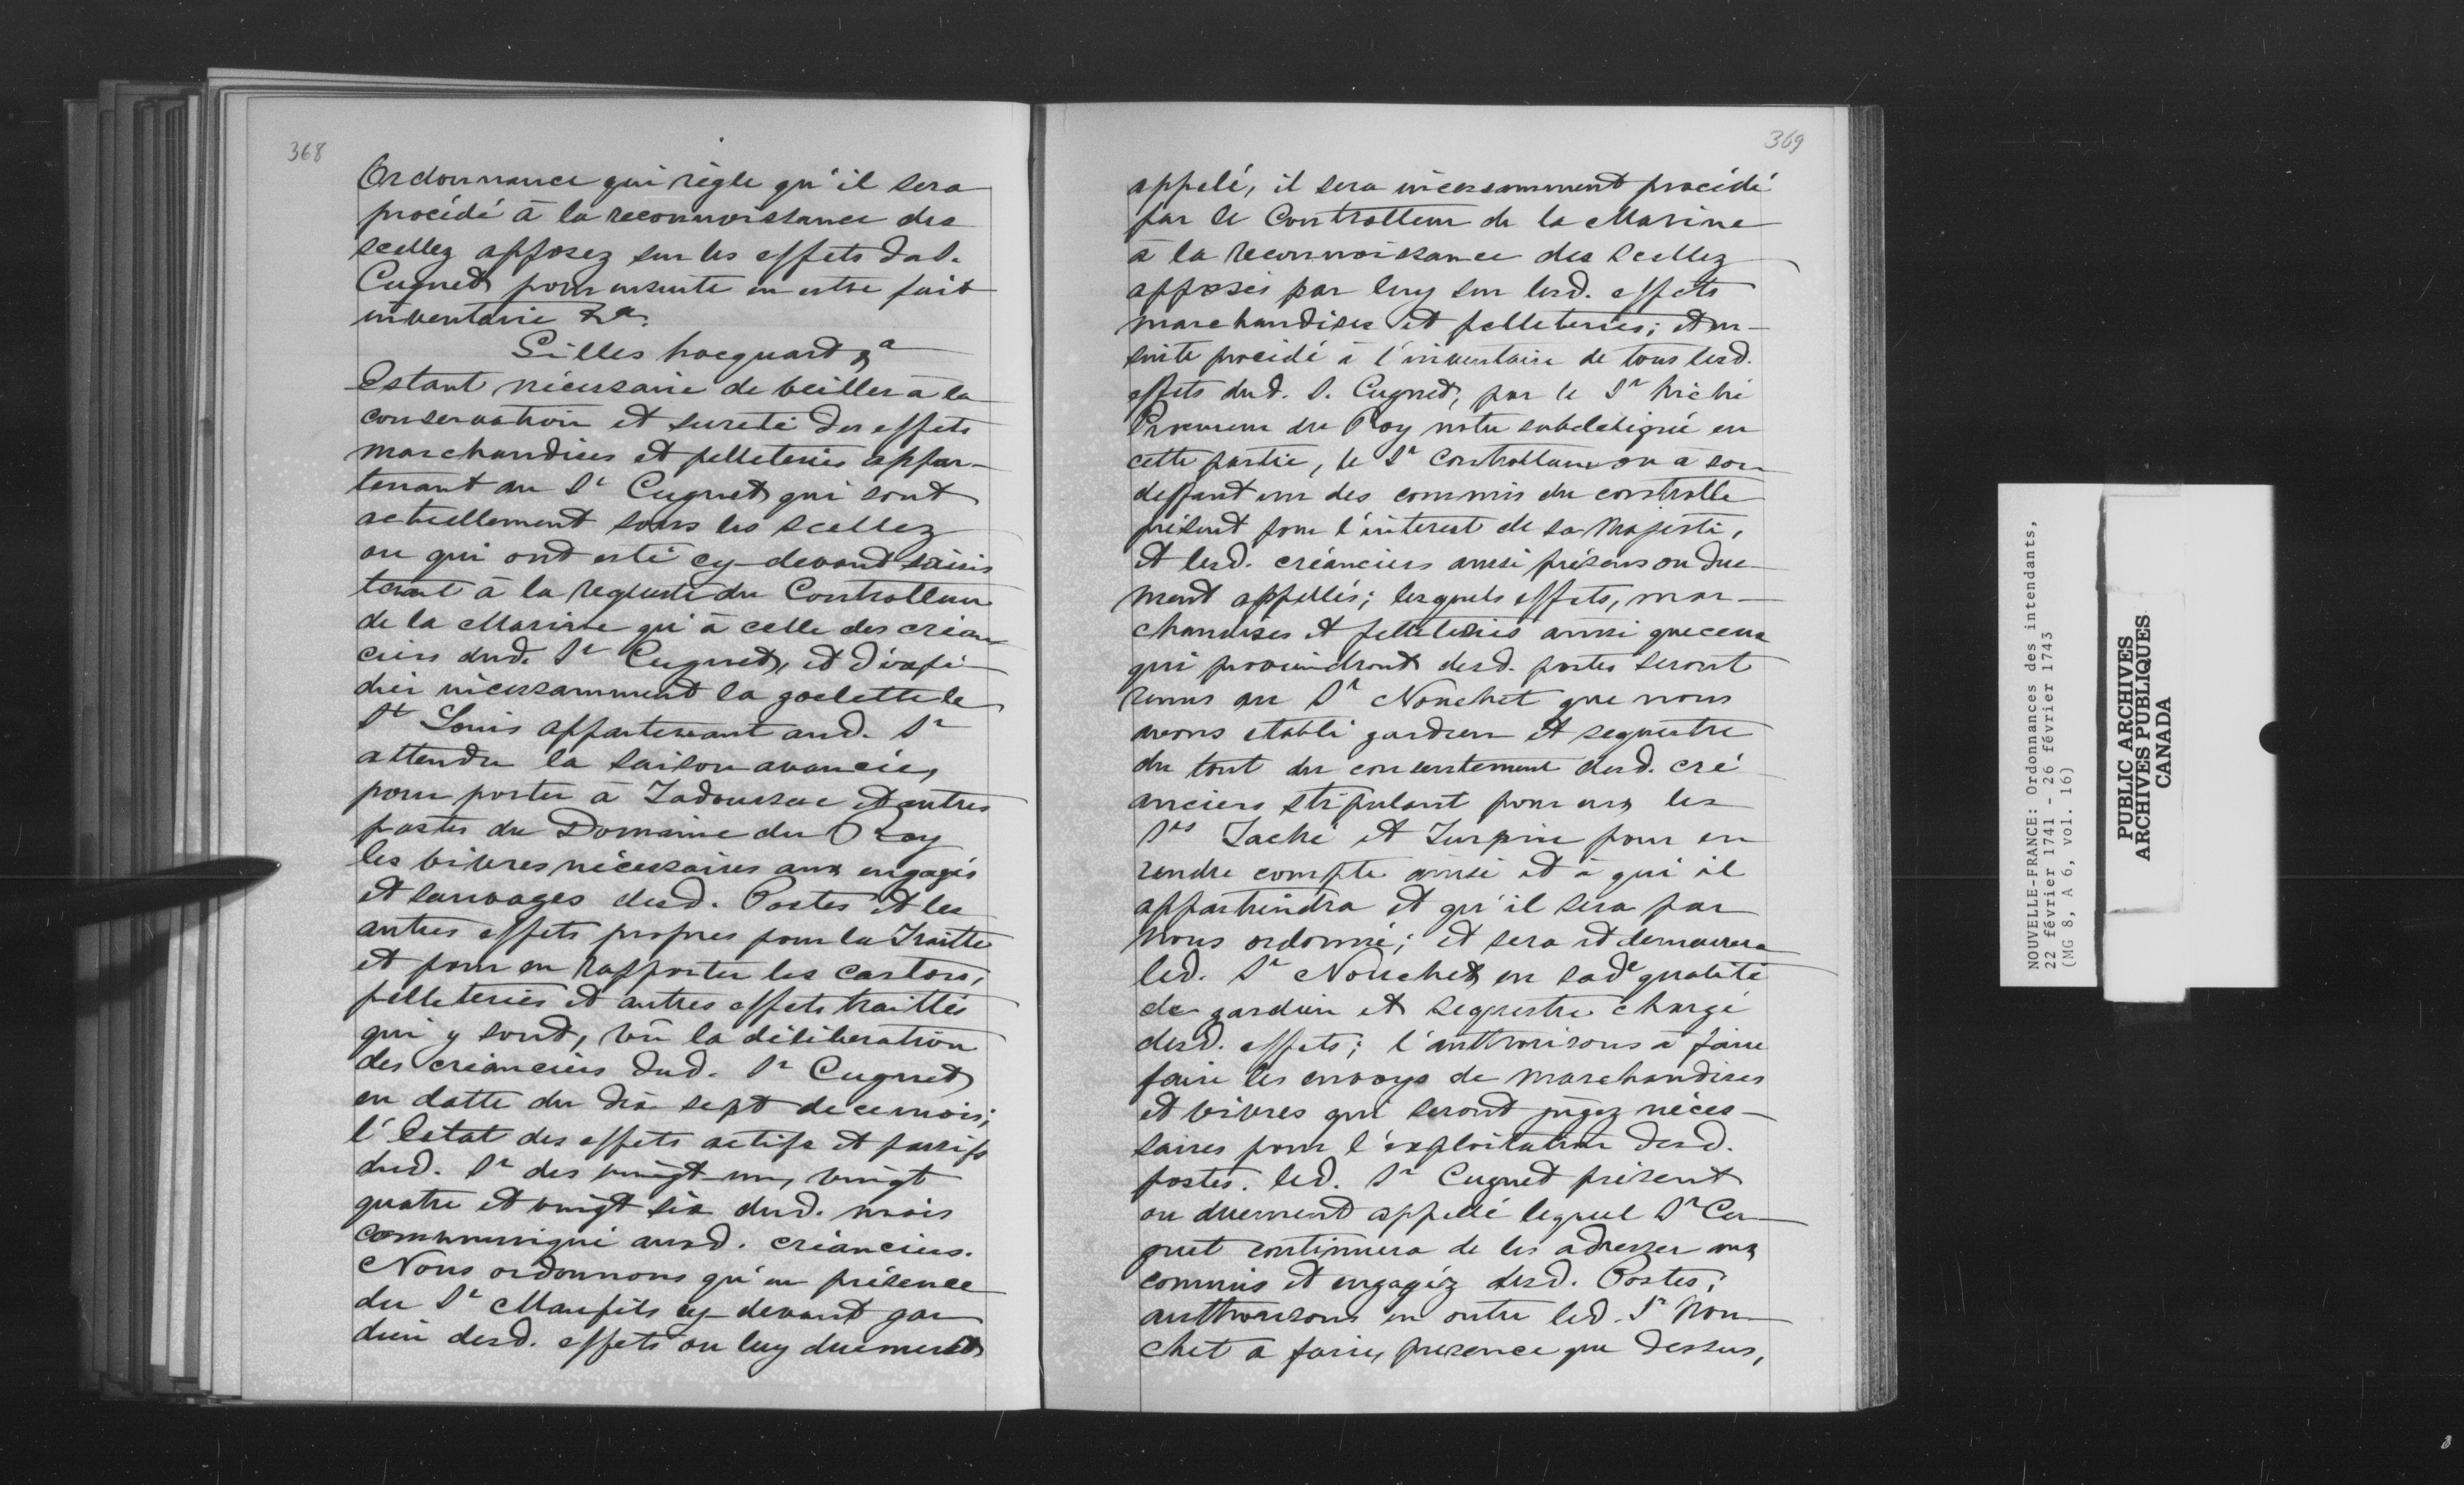 368
Ordonnance qui règle qu'il sera
procédé à la reconnoissance des
scellez apposez sur les effets du s.
Cugnet pour ensuite en estre fait
inventaire &a.
Gilles hocquart &a
Estant nécessaire de veiller à la
conservation et sureté des effets
marchandises et pelleteries appar-
tenant au Sr Cugnet qui sont
actuellement sous les scellez
ou qui ont esté cy-devant saisis
tant à la requeste du Controlleur
de la Marine qu'à celle des créan
ciers dud. Sr Cugnet, et d'expé-
dier incessamment la goelette le
St Louis appartenant aud. Sr
attendu la saison avancée,
pour porter à Tadoussac et autres
postes du Domaine du Roy
les vivres nécessaires aux engagés
et sauvages desd. Postes et les
autres effets propres pour la Traitte
et pour en rapporter les castors,
pelleteries et autres effets traittés
qui y sont, vû la délibération
des créanciers dud. Sr Cugnet
en datte du dix sept de ce mois;
l'Estat des effets actifs et passifs
dud. Sr des vingt-un, vingt
quatre et vingt six dud. mois
communiqué ausd. créanciers.
Nous ordonnons qu'en présence
du Sr Maufils cy-devant gar
dien desd. effets ou luy duement
369
appelé, il sera incessamment procédé
par le Controlleur de la Marine
à la reconnoissance des scellez
apposés par luy sur lesd. effets
marchandises et pelleteries; et en-
suite procédé à l'inventaire de tous lesd.
effets dud. S. Cugnet, par le Sr hiché
Procureur du Roy notre subdélégué en
cette partie, le Sr Controlleur ou a son
deffaut un des commis du controlle
présent pour l'interest de sa Majesté,
et lesd. créanciers aussi présens ou due-
ment appellés; lesquels effets, mar-
chandises et pelleteries aussi que ceux
qui proviendront desd. postes seront
remis au Sr Nouchet que nous
avons etabli gardien et sequestre
du tout du consentement desd. cré-
anciers stipulant pour eux les
Srs Taché et Turpin pour en
rendre compte ainsi et à qui il
appartiendra et qu'il sera par
nous ordonné; et sera et demeurera
led. Sr Nouchet en sade qualité
de gardien et sequestre chargé
desd. effets; l'authorisons à faire
faire les envoys de marchandises
et vivres qui seront jugez néces-
saires pour l'exploitation desd.
postes. led. Sr Cugnet présent
ou duement appellé lequel Sr Cu-
gnet continuera de les adresser aux
commis et engagéz desd. Postes;
authorisons en outre led. Sr Nou-
chet a faire, presence que dessus,
NOUVELLE-FRANCE: Ordonnances des intendants,
22 février 1741 - 26 février 1743
(MG 8, A 6, vol. 16)
PUBLIC ARCHIVES
ARCHIVES PUBLIQUES
CANADA